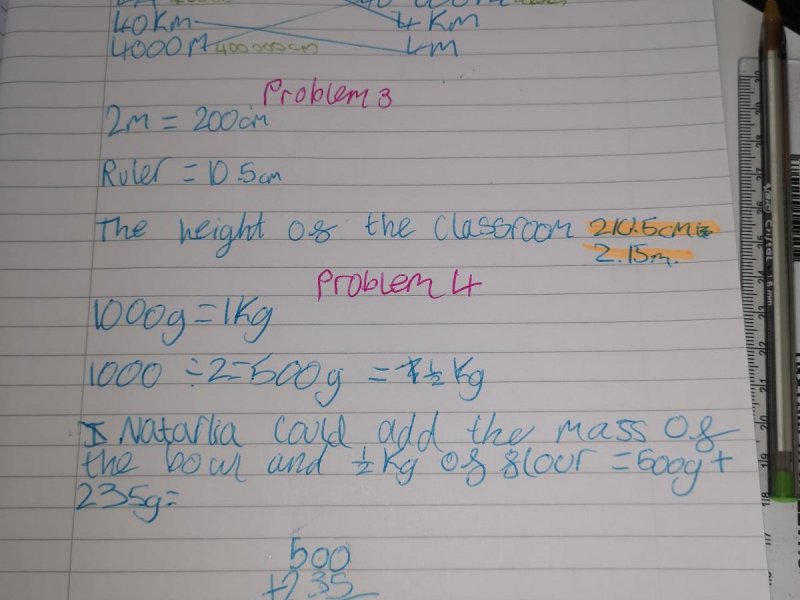 40Km 4Km
4000M 400000cm 4m
Problem 3
2m = 200cm
Ruler = 10.5cm
The height of the classroom 210.5cm =
2.15m.
Problem 4
1000g = 1Kg
1000 ÷ 2 = 500g = ½ Kg
Natarlia could add the mass of
the bowl and ½ Kg of flour = 500g +
235g =
500
+235